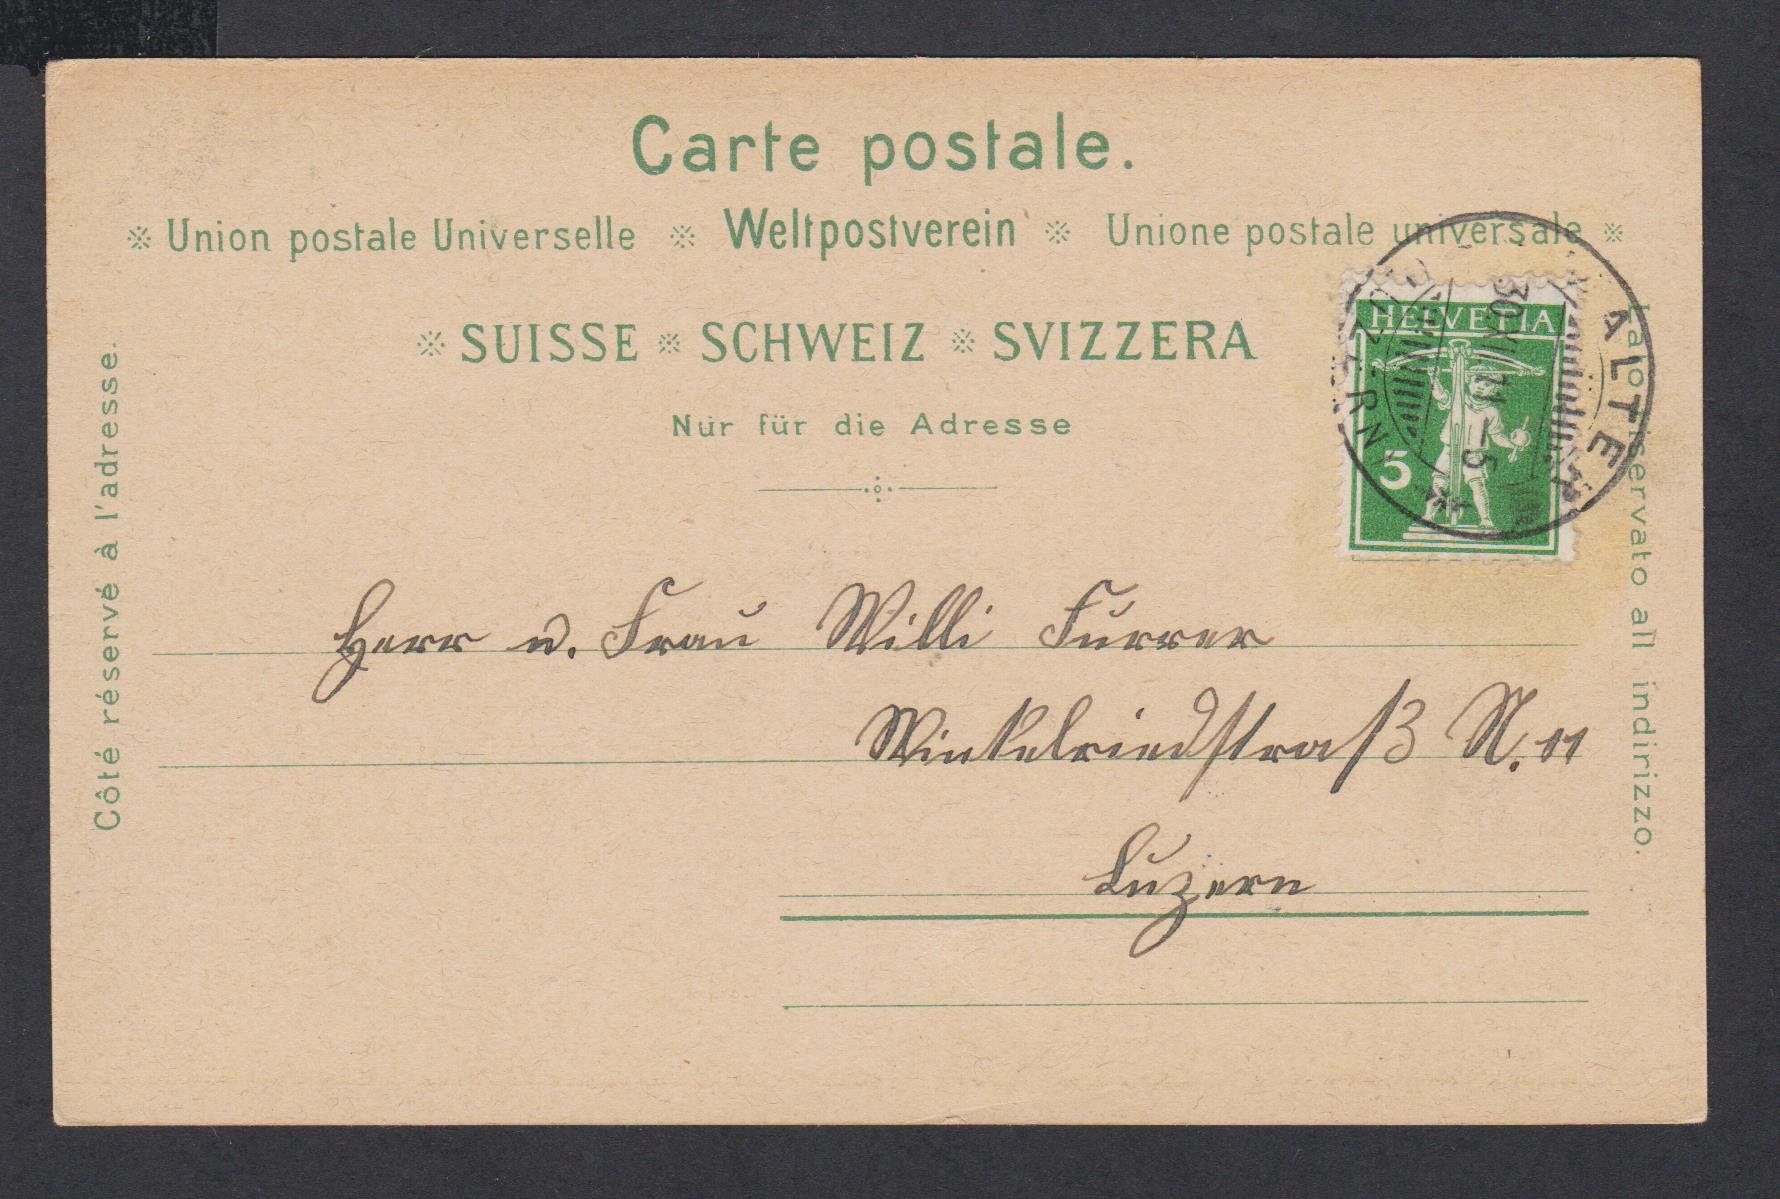 Carte postale.
※ Union postale Universelle ※ Weltpostverein ※ Unione postale universale ※
※ SUISSE ※ SCHWEIZ ※ SVIZZERA
Nur für die Adresse
Côté réservé à l'adresse.
Lato riservato all indirizzo.
HELVETIA
5
ALTE
Herr u. Frau Willi Furrer
Winkelriedstraß N. 11
Luzern